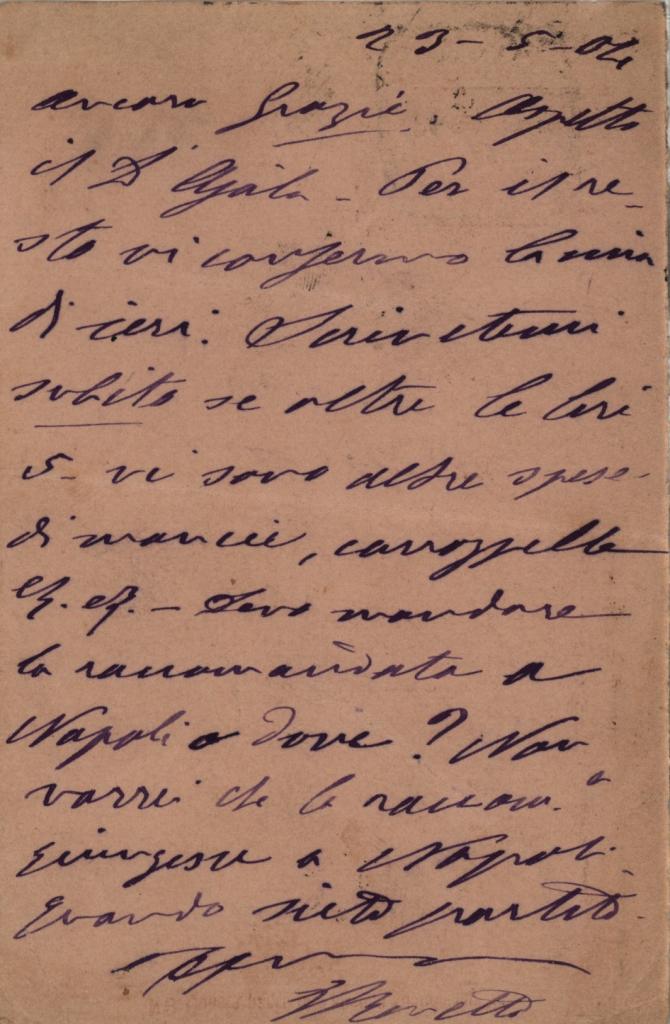 23-5-04
ancora Grazie. Aspetto
il D. Per il re-
sto vi confermo la mia
di ieri. Scrivetemi
subito se oltre le lire
5- vi sono altre spese
di mancie, carrozzella
Devo mandare
la raccomandata a
Napoli o dove? Non
vorrei che la raccom.a
giungesse a Napoli
quando siete partito.